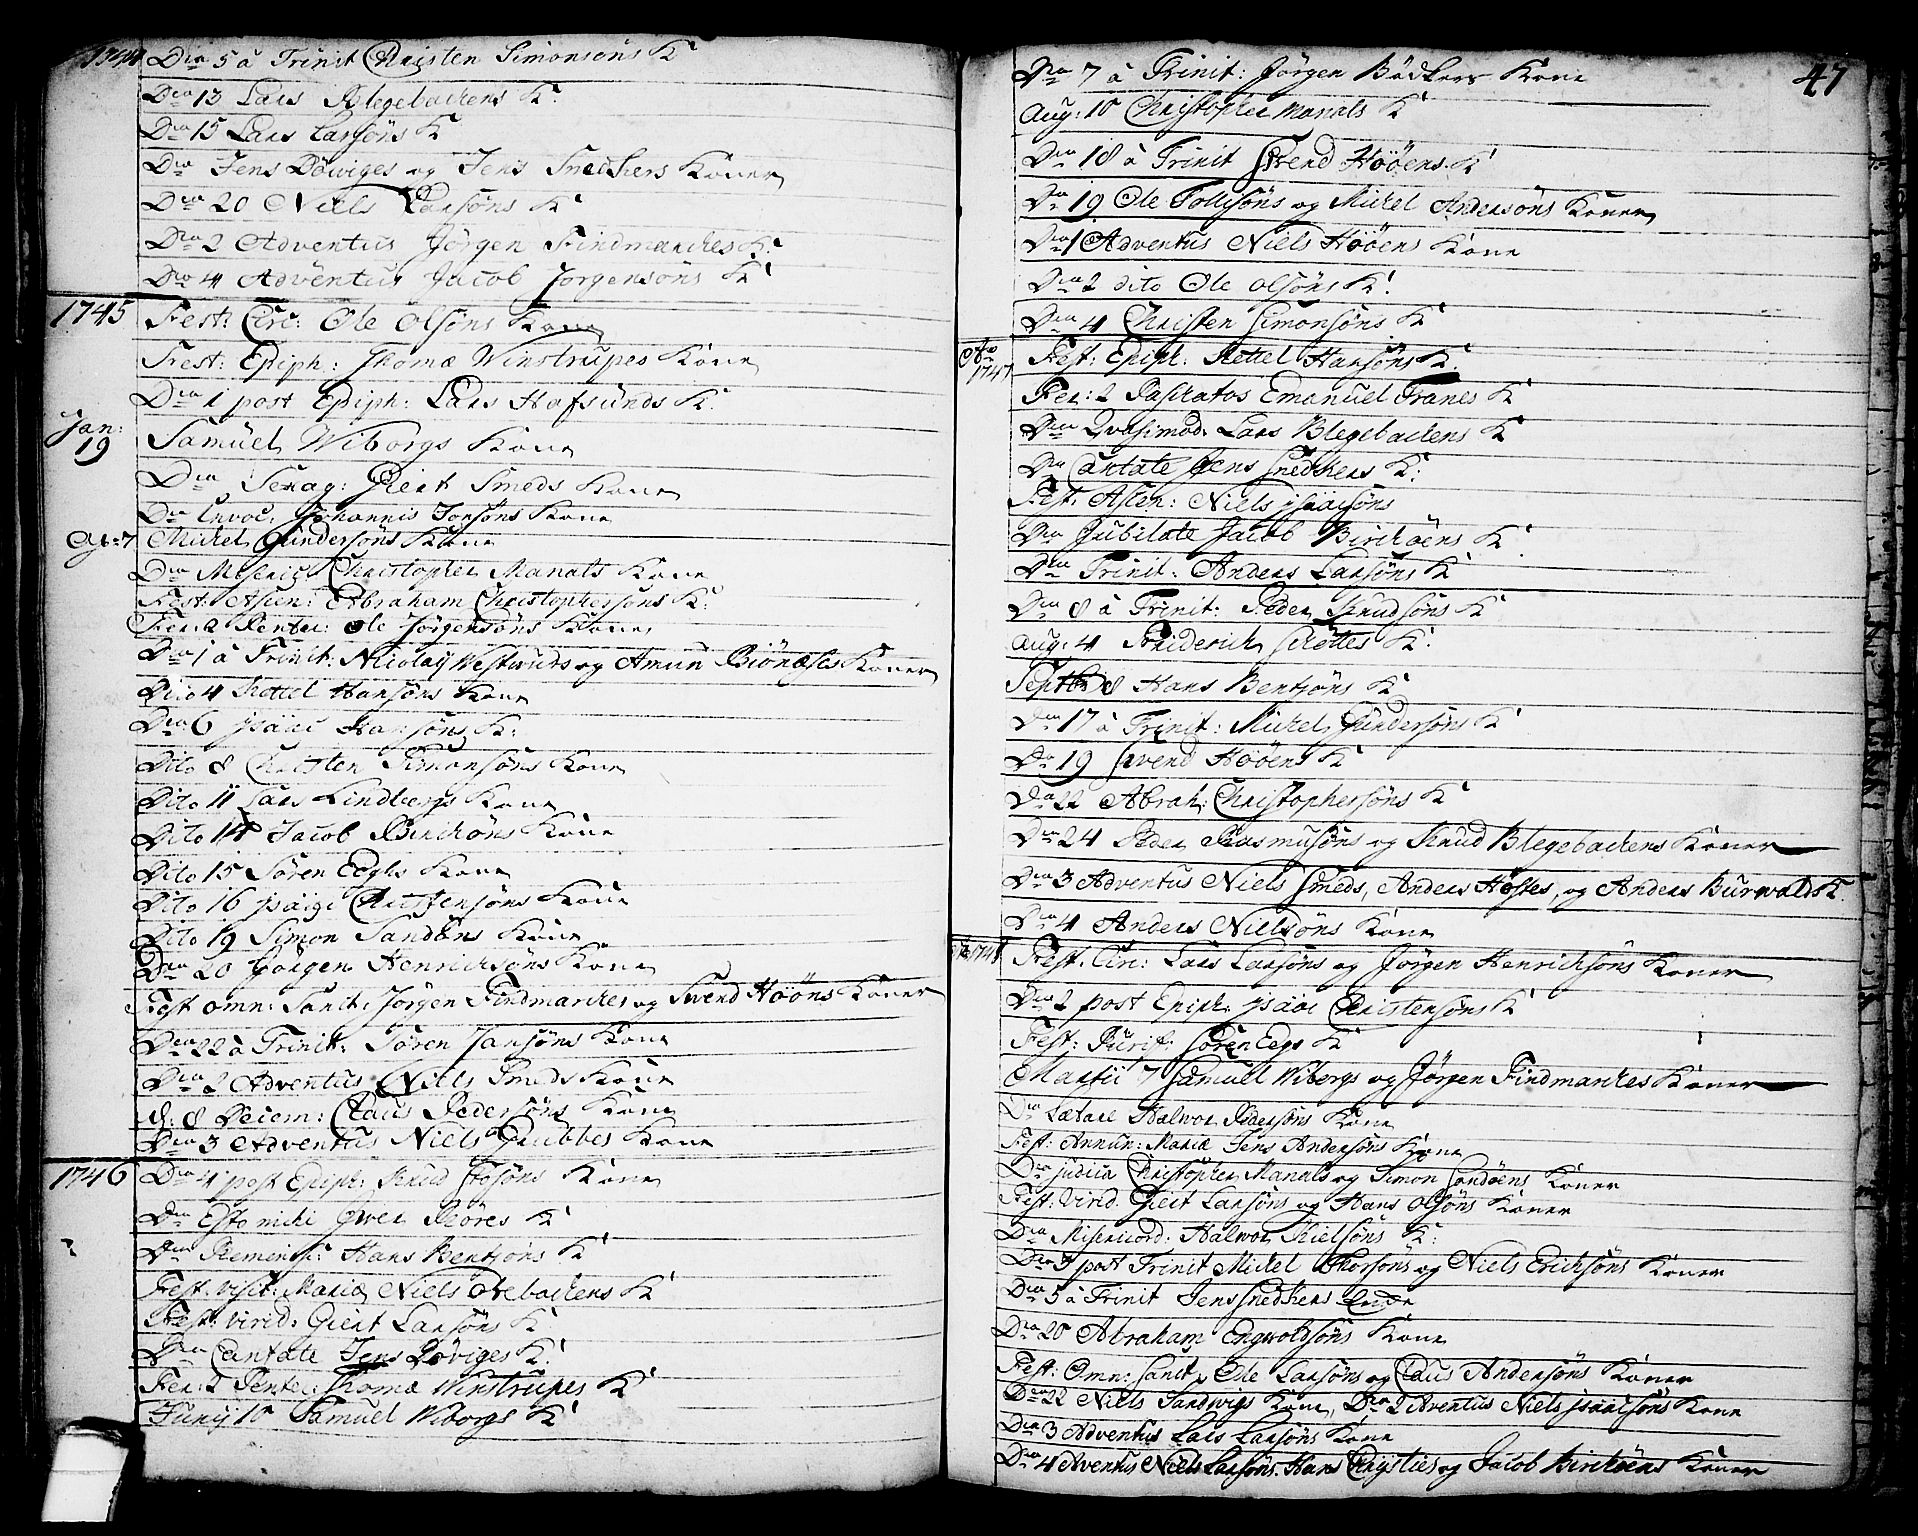 1744 Dca 5 â Trinit Christen Simonsøns K
Dca 13 Lars Blegebackens K:
Dca 15 Lars Larsøns K
Dca Jens Døviges og Jens Snedkers Koner
Dca 20 Niels Larsøns K
Dca 2 Adventus Jørgen Findmarckes K:
Dca 4 Adventus Jacob Jørgensøns K
1745 Fest: Circ: Ole Olsøns Kone
Fest: Epiph: Thomæ Winstrupes Kone
Dca 1 post Epiph: Lars Hafsunds K.
Jan: 19 Samuel Wiborgs Kone
Dca Sexag: Giert Smeds Kone
Dca Invoc: Johannis Jonsøns Kone
Ap: 7 Michel Gundersøns Kone
Dca Miseric: Christopher Manals Kone
Fest: Ascen: Abraham Christophersøns K:
Fer: 2 Pentec: Ole Jørgensøns Kone
Dca 1 â Trinit: Nicolaij Westwuds og Amun Biørnæses Koner
Dito 4 Kettel Hansøns Kone
Dca 6 Isaac Hansøns K:
Dito 8 Christen Simonsøns Kone
Dito 11 Lars Lindbergs Kone
Dito 14 Jacob Birchøns Kone
Dito 15 Søren Eeghs Kone
Dito 16 Isaac Christensøns Kone
Dito 19 Simon Sandøns Kone
Dca 20 Jørgen Henricksøns Kone
Fest omn: Sanct: Jørgen Findmarckes og Svend Høøns Koner
Dca 22 â Trinit: Søren Jansøns Kone
Dca 2 Adventus Niels Smeds Kone
d: 8 Decem: Claus Pedersøns Kone
Dca 3 Adventus Niels Grubbes Kone
1746 Dca 4 post Epiph: Knud Kone
Dca Esto mihi Iver Røres K
Dca Reminisc: Hans Bentsøns K
Fest. visit: Mariæ Niels Ovebackens K
Fest: virid: Giert Larsøns K
Dca Cantate Jens Døviges K:
Fer: 2 Pentec: Thomæ Winstrupes K
Junij 10 Samuel Wiborgs K
47
Dca 7 â Trinit: Jørgen Bødkers Kone
Aug: 10 Christopher Manals K
Dca 18 â Trinit Svend Høøens K
Dca 19 Ole Tollisøns og Michel Andersøns Koner
Dca 1 Adventus Niels Høøens Kone
Dca 2 dito Ole Olsøns K:
Dca 4 Christen Simonsøns K
Ao 1747 Fest: Epiph: Kettel Hansøns K:
Fer: 2 Paschatos Emanuel Franes K
Dca Qvasimod: Lars Blegebackens K
Dca Cantate Jens Snedkers K:
Fest: Ascen: Niels Isaacsøns
Dca Jubilate Jacob Birchøens K
Dca Trinit: Anders Larsøns K
Dca 8 â Trinit: Peder Knudsøns K
Aug: 4 Friderich Skottes K:
Septbr 8 Hans Bentsøns K
Dca 17 â Trinit: Michel Gundersøns K
Dca 19 Svend Høøens K
Dca 22 Abrah: Christophersøns K
Dca 24 Peder Rasmusøns og Knud Blegebackens Koner
Dca 3 Adventus Niels Smeds, Anders Høstes, og Anders Burwalds K.
Dca 4 Anders Nielsøns Kone
Ao 1748 Fest. Circ: Lars Larsøns og Jørgen Henricksøns Koner
Dca 2 post Epiph: Isaac Christensøns K
Fest: Purif: Søren Eegs K
Martii 7 Samuel Wiborgs og Jørgen Findmarckes Koner
Dca Lætare Halvor Pedersøns Kone
Fest: Annun: Mariæ Jens Andersøns Kone
Dca Judica Christopher Manals og Simon Sandøens Koner
Fest: virid. Giert Larsøns og Hans Olsøns Koner
Dca Misericord: Halvor Kielsøns K:
Dca 3 post Trinit Michel Thorsøns og Niels Ericksøns Koner
Dca 5 â Trinit Jens Snedkers Encke
Dca 20 Abraham Engwoldsøns Kone
Fest: Omn: Sanct: Ole Larsøns og Claus Andersøns Koner
Dca 22 Niels Sandwigs Kone, Dca 2 Aventus Niels Isaacsøns Kone
Dca 3 Adventus Lars Larsøns Kone
Dca 4 Aventus Niels Larsøns. Hans Chrysties og Jacob Birchøens Koner